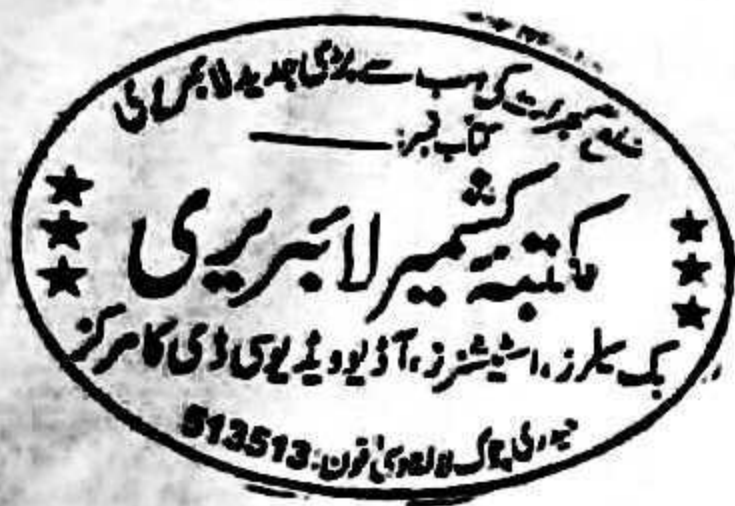 ضلع گجرات کی سب سے بڑی جدید لائبریری
کتاب نمبر:
مکتبہ کشمیر لائبریری
بک سیلرز، اسٹیشنرز، آڈیو ویڈیو سی ڈی کا مرکز
حیدری چوک لالہ موسیٰ فون: 513513